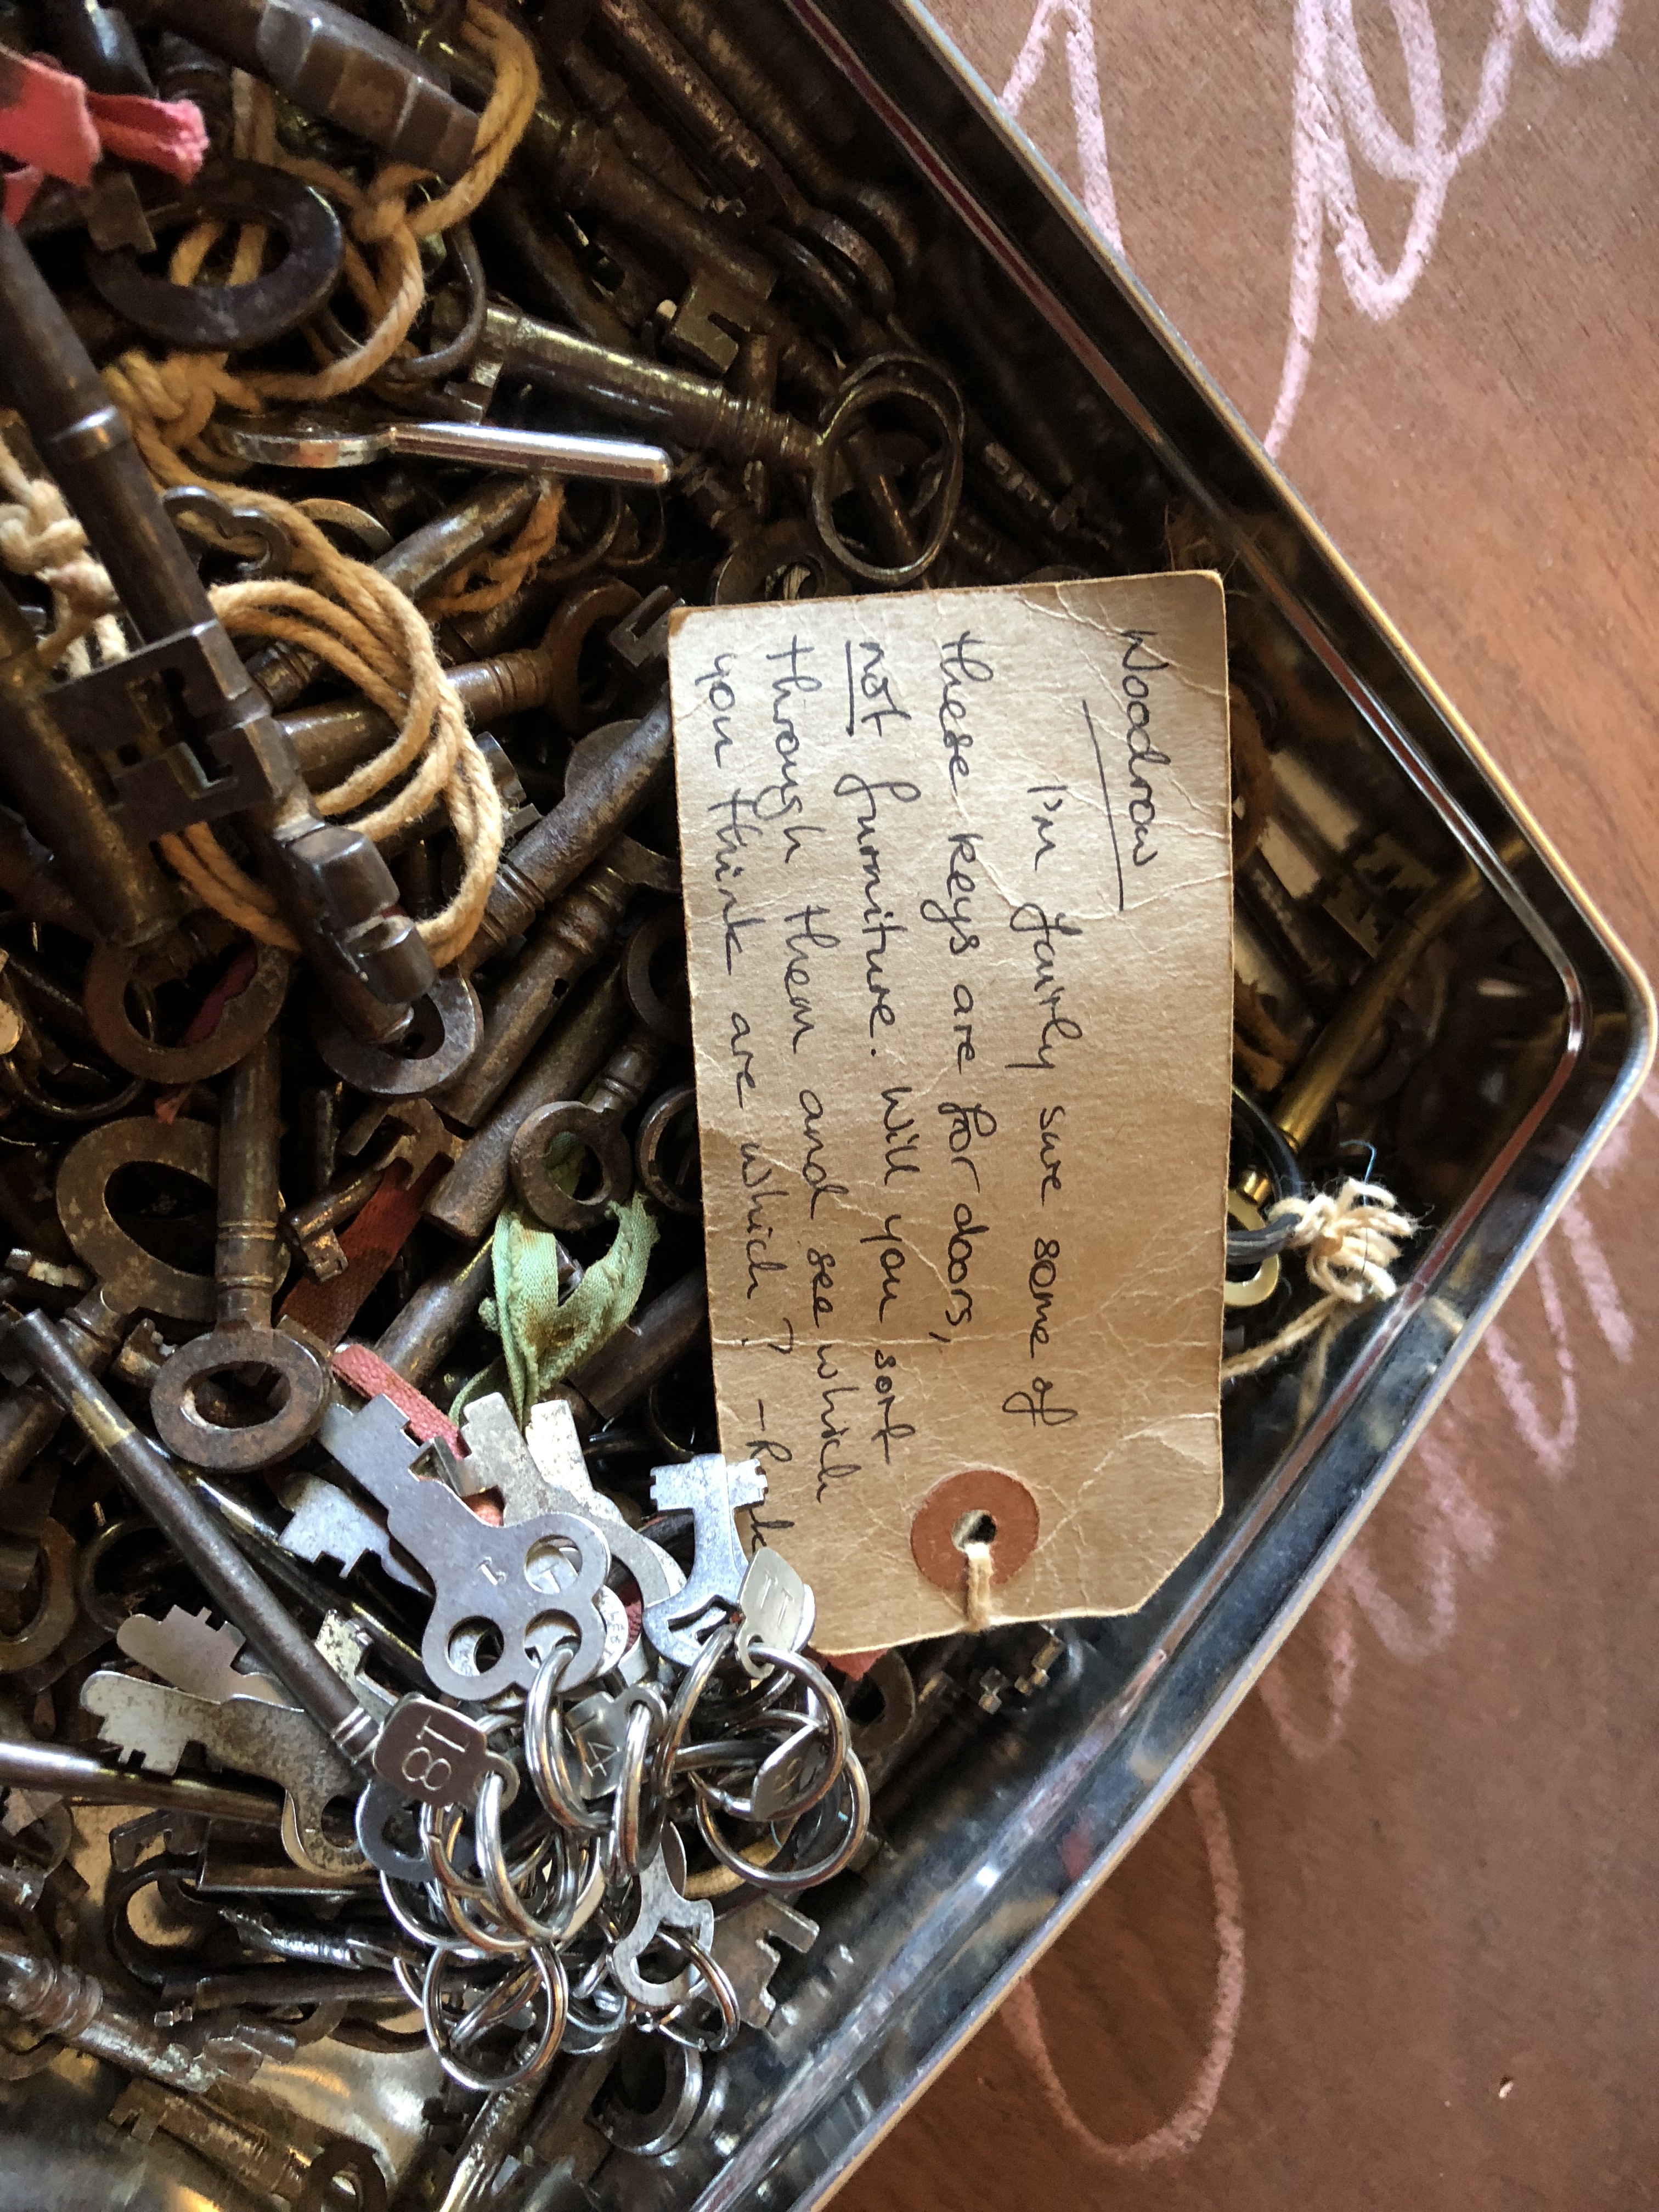 Woodrow
I'm fairly sure some of
these keys are for doors,
not furniture. Will you sort
through them and see which
you think are which? -R
81
14
11
1